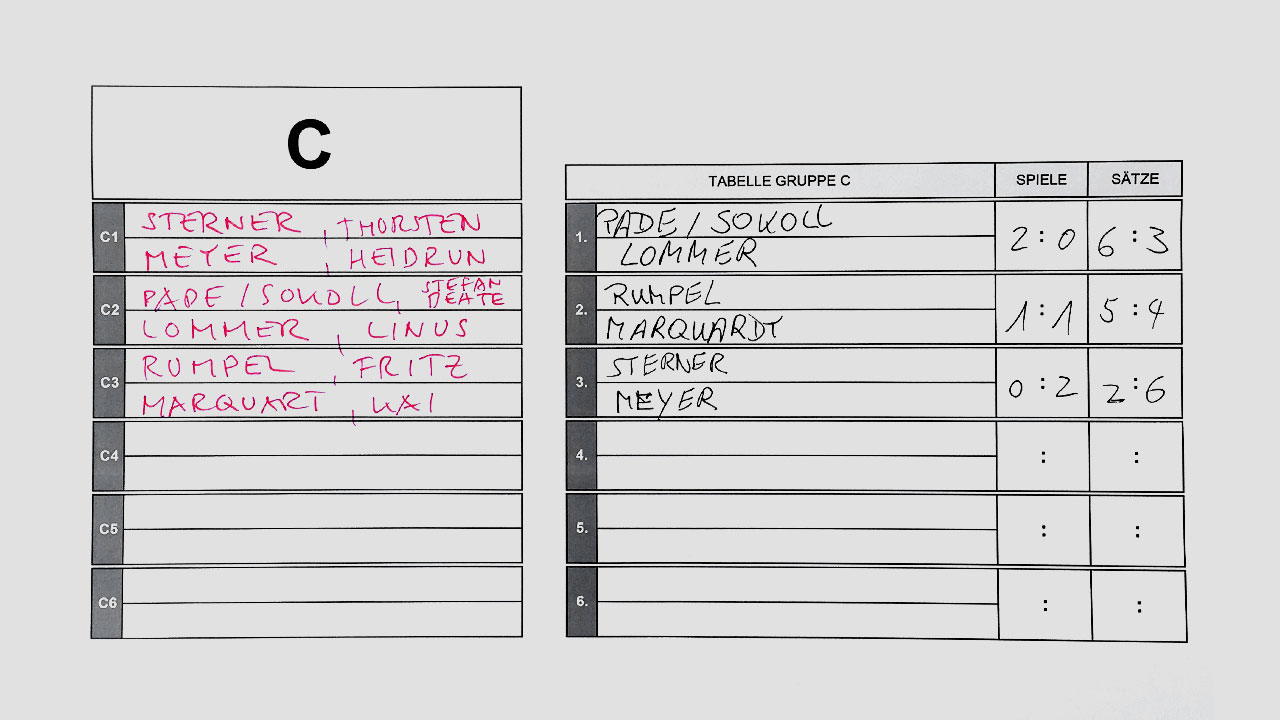 C
C1 STERNER, THORSTEN
MEYER, HEIDRUN
C2 PADE / SOKOLL, STEFAN BEATE
LOMMER, LINUS
C3 RUMPEL, FRITZ
MARQUART, KAI
C4
C5
C6
TABELLE GRUPPE C SPIELE SÄTZE
1. PADE / SOKOLL 2:0 6:3
LOMMER
2. RUMPEL 1:1 5:4
MARQUARDT
3. STERNER 0:2 2:6
MEYER
4. : :
5. : :
6. : :